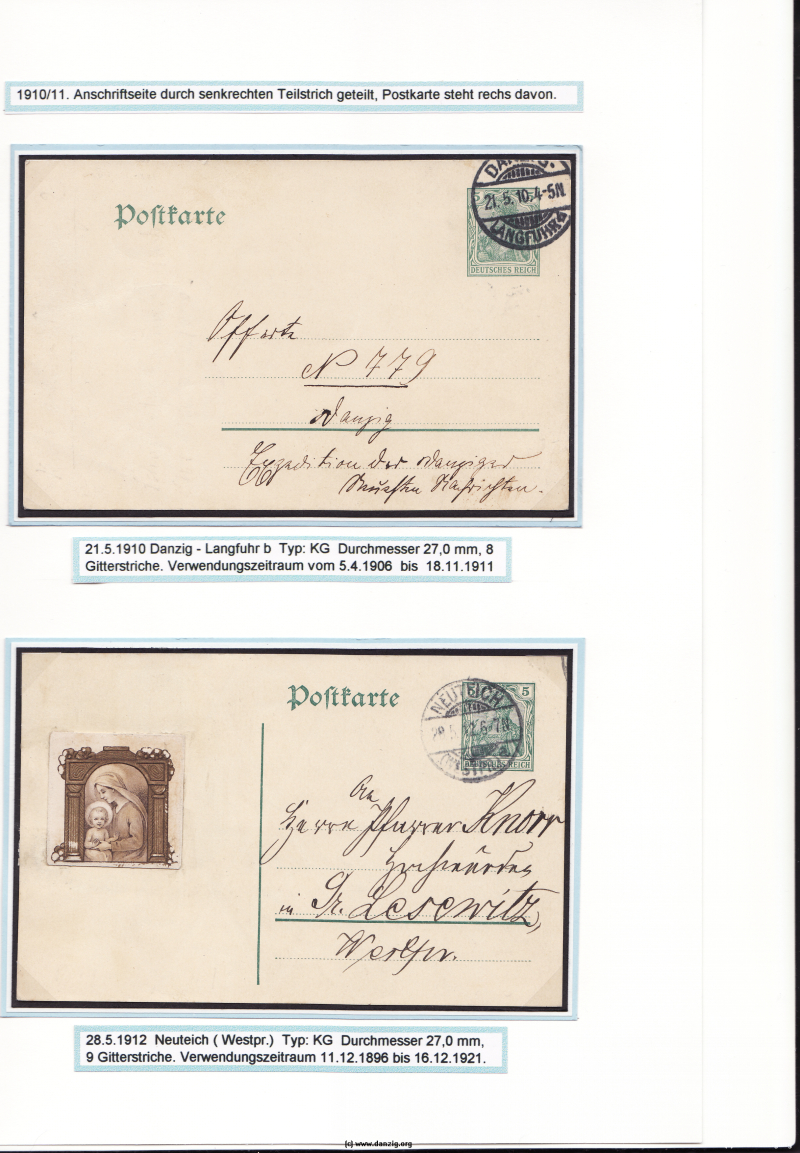 1910/11. Anschriftseite durch senkrechten Teilstrich geteilt, Postkarte steht rechs davon.
Postkarte
DANZIG.
21.5.10.4-5N.
LANGFUHR
5
DEUTSCHES REICH
Offerte
N 779
Danzig
Expedition der Danziger
Neuesten Nachrichten.
21.5.1910 Danzig - Langfuhr b Typ: KG Durchmesser 27,0 mm, 8
Gitterstriche. Verwendungszeitraum vom 5.4.1906 bis 18.11.1911
Postkarte
NEUTEICH
5
DEUTSCHES REICH
An
Herrn Pfarrer Knorr
Hochwürden
in Gr. Lesewitz,
Westpr.
28.5.1912 Neuteich ( Westpr.) Typ: KG Durchmesser 27,0 mm,
9 Gitterstriche. Verwendungszeitraum 11.12.1896 bis 16.12.1921.
(c) www.danzig.org